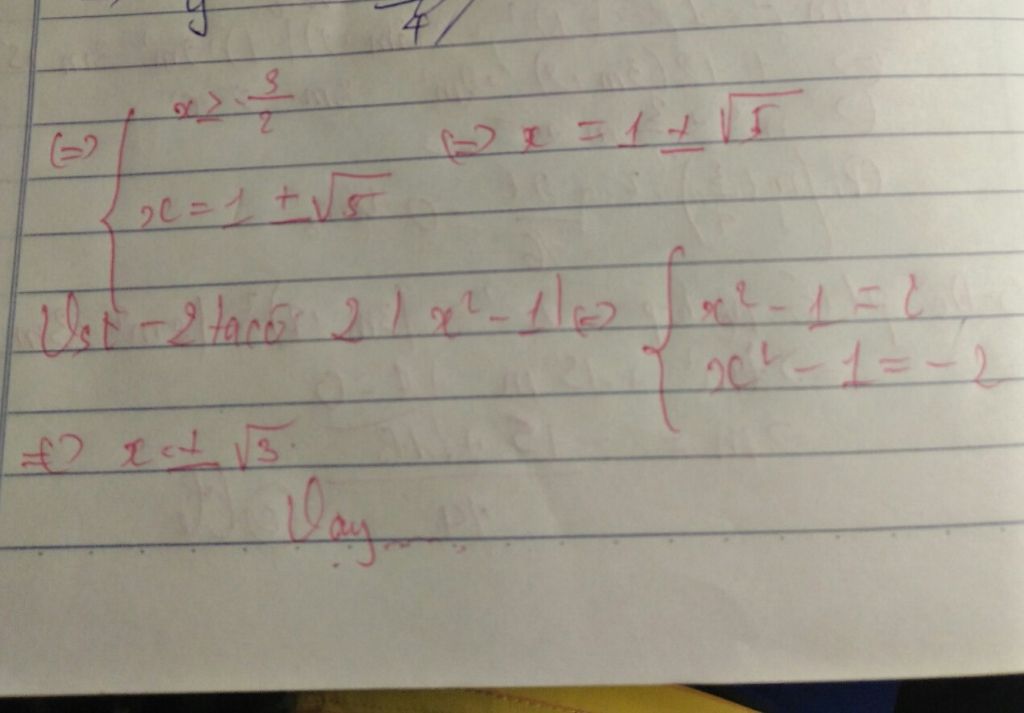 y 4
⇔ { x ≥ -3/2
x = 1 ± √5 ⇔ x = 1 ± √5
Với t = 2 ta có 2 | x² - 1 | ⇔ { x² - 1 = 2
x² - 1 = -2
⇔ x = ± √3.
Vay......